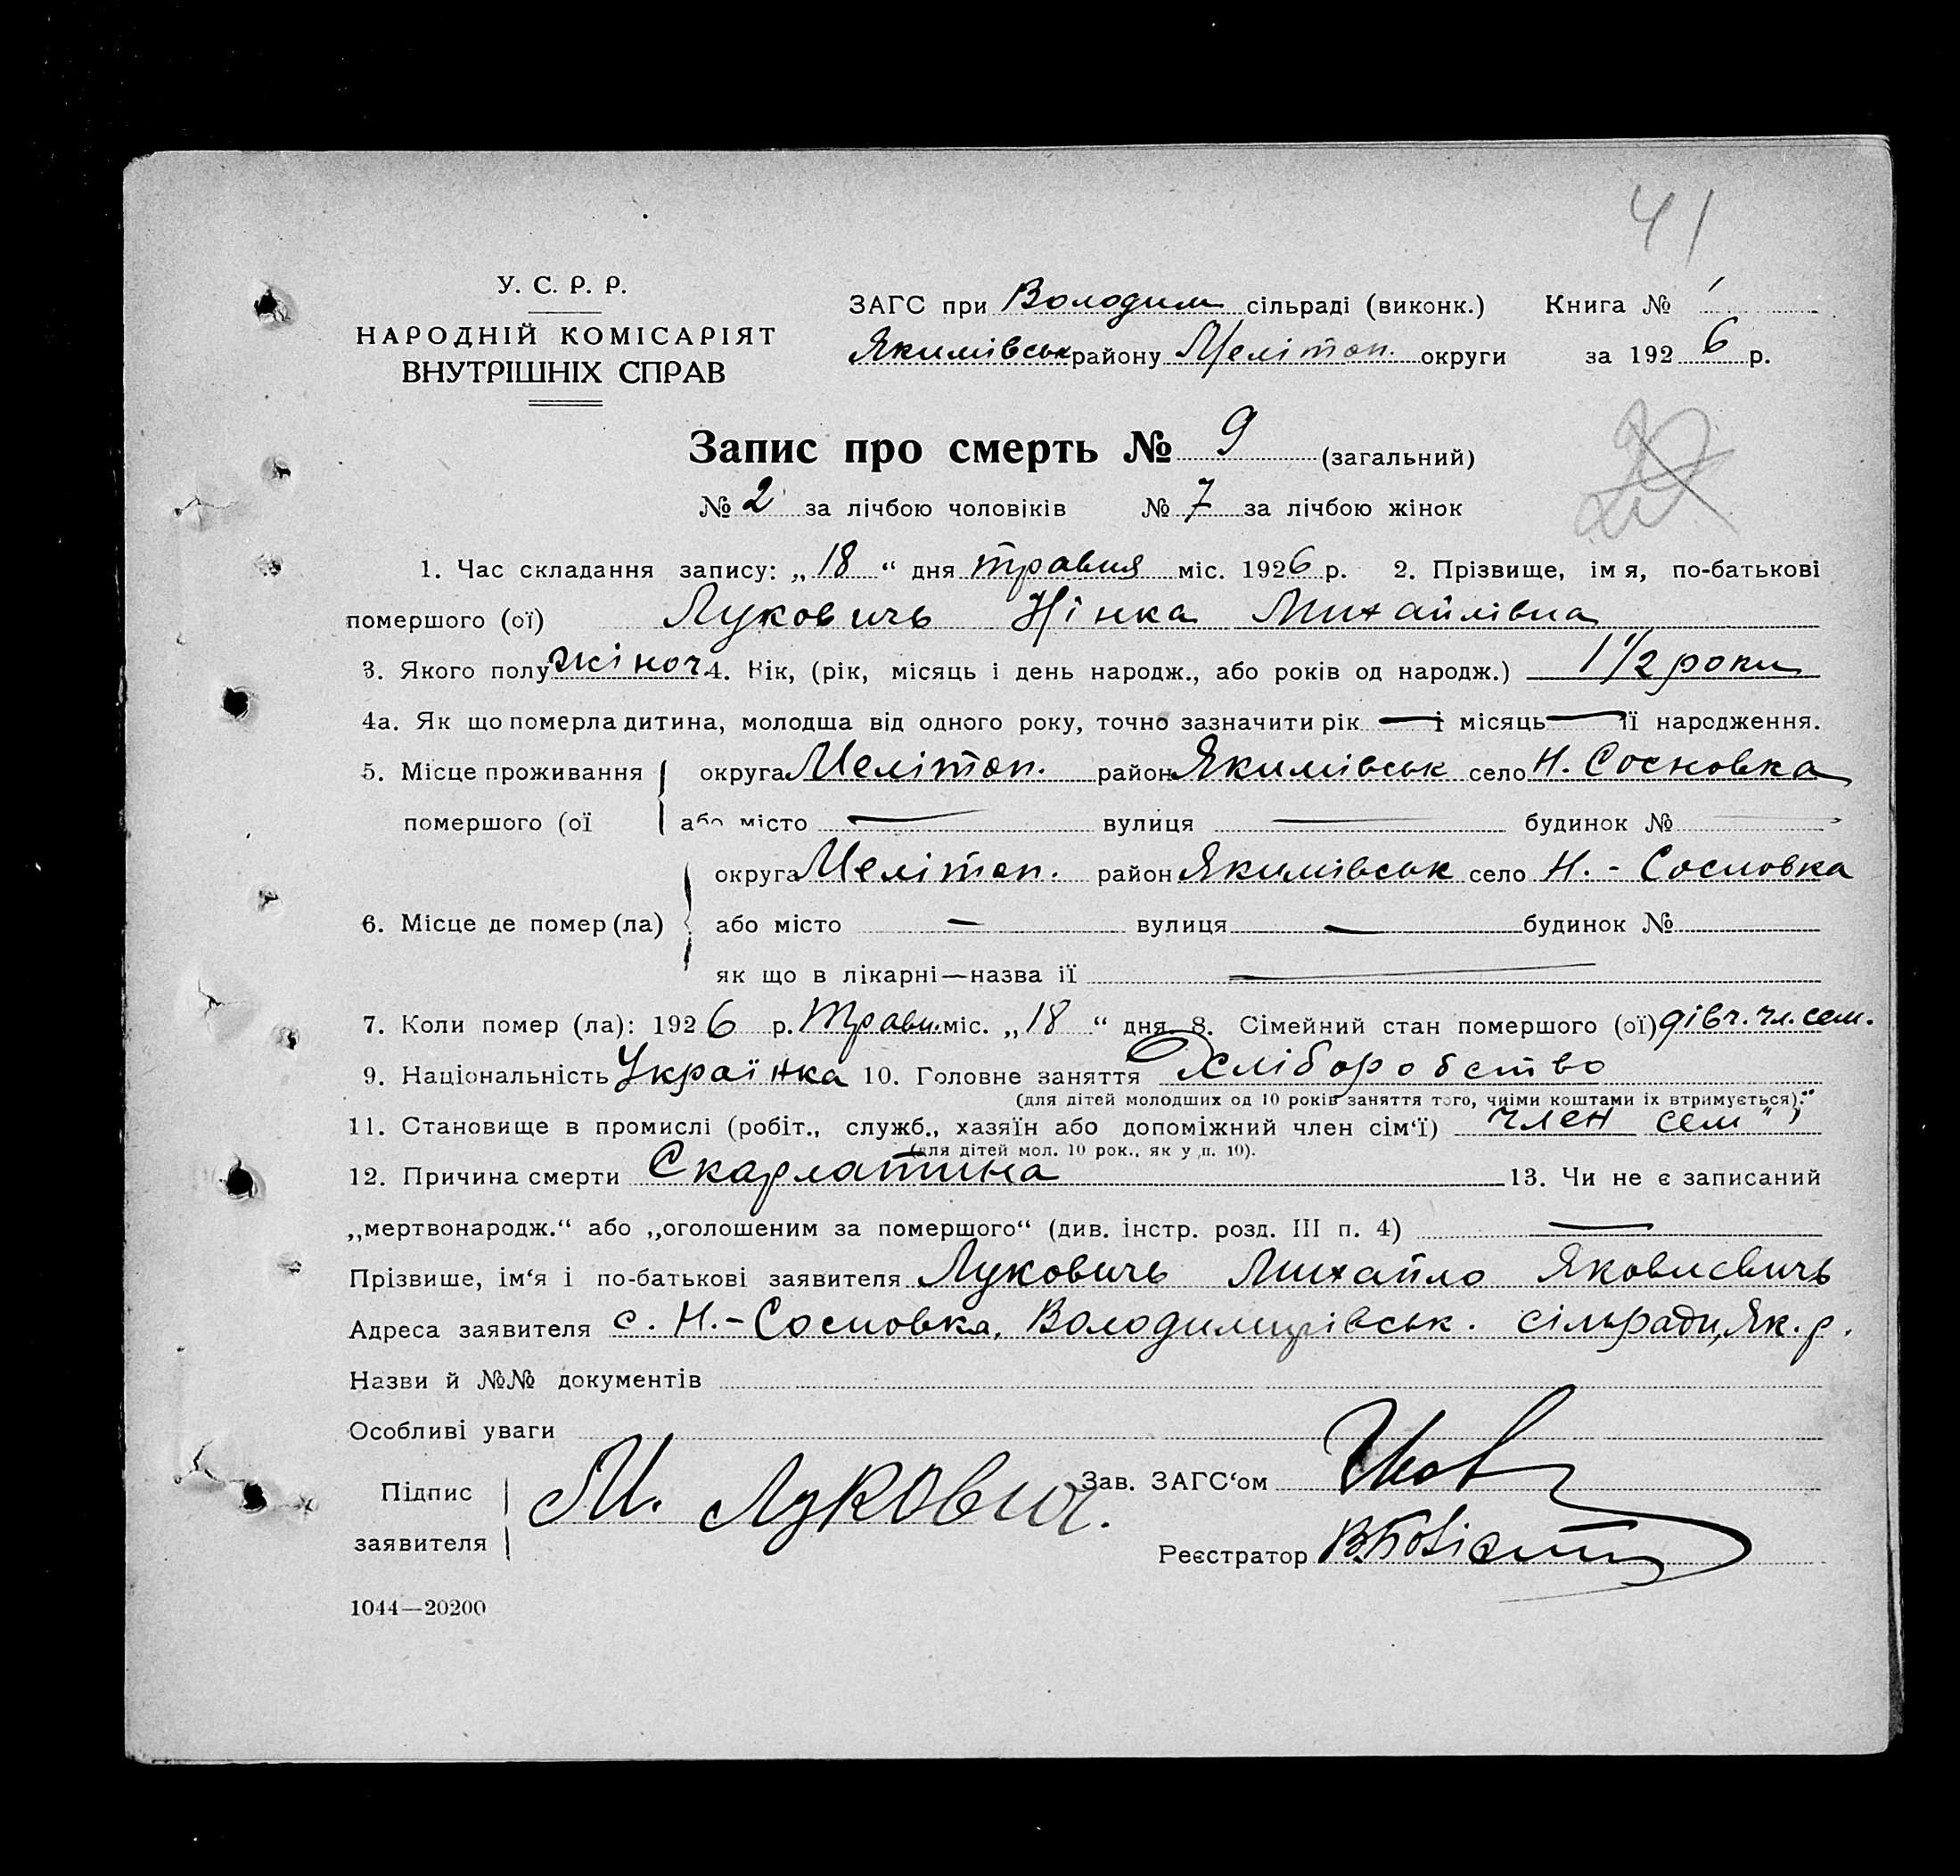 41
У. С. Р. Р.
НАРОДНІЙ КОМІСАРІЯТ
ВНУТРІШНІХ СПРАВ
ЗАГС при Володим сільраді (виконк.) Книга № 1
Якимівськ району Мелітоп. округи за 1926 р.
Запис про смерть № 9 (загальний)
№ 2 за лічбою чоловіків № 7 за лічбою жінок
1. Час складання запису: „18“ дня травня міс. 1926 р. 2. Прізвище, імя, по-батькові
помершого (ої) Луковичь Нінка Михайлівна
3. Якого полу жіноч 4. Вік, (рік, місяць і день народж., або років од народж.) 1 1/2 роки
4а. Як що померла дитина, молодша від одного року, точно зазначити рік — і місяць — її народження.
5. Місце проживання округа Мелітоп. район Якимівськ село Н. Сосновка
помершого (ої або місто — вулиця — будинок № —
округа Мелітоп. район Якимівськ село Н.-Сосновка
6. Місце де помер (ла) або місто — вулиця — будинок №
як що в лікарні—назва ії —
7. Коли помер (ла): 1926 р. Травн. міс. „18“ дня 8. Сімейний стан помершого (ої) дівч. чл. сем.
9. Національність Українка 10. Головне заняття Хліборобство
(для дітей молодших од 10 років заняття того, чиїми коштами їх втримується).
11. Становище в промислі (робіт., служб., хазяїн або допоміжний член сім‘ї) член сем"
(для дітей мол. 10 рок., як у п. 10).
12. Причина смерти Скарлатина 13. Чи не є записаний
„мертвонародж.“ або „оголошеним за помершого“ (див. інстр. розд. III п. 4) —
Прізвише, ім‘я і по-батькові заявителя Луковичь Михайло Яковлевичь
Адреса заявителя с. Н.-Сосновка, Володимирівськ. сільради, Як. р.
Назви й №№ документів
Особливі уваги
Підпис М. Лукович. Зав. ЗАГС‘ом
заявителя Реєстратор
1044—20200